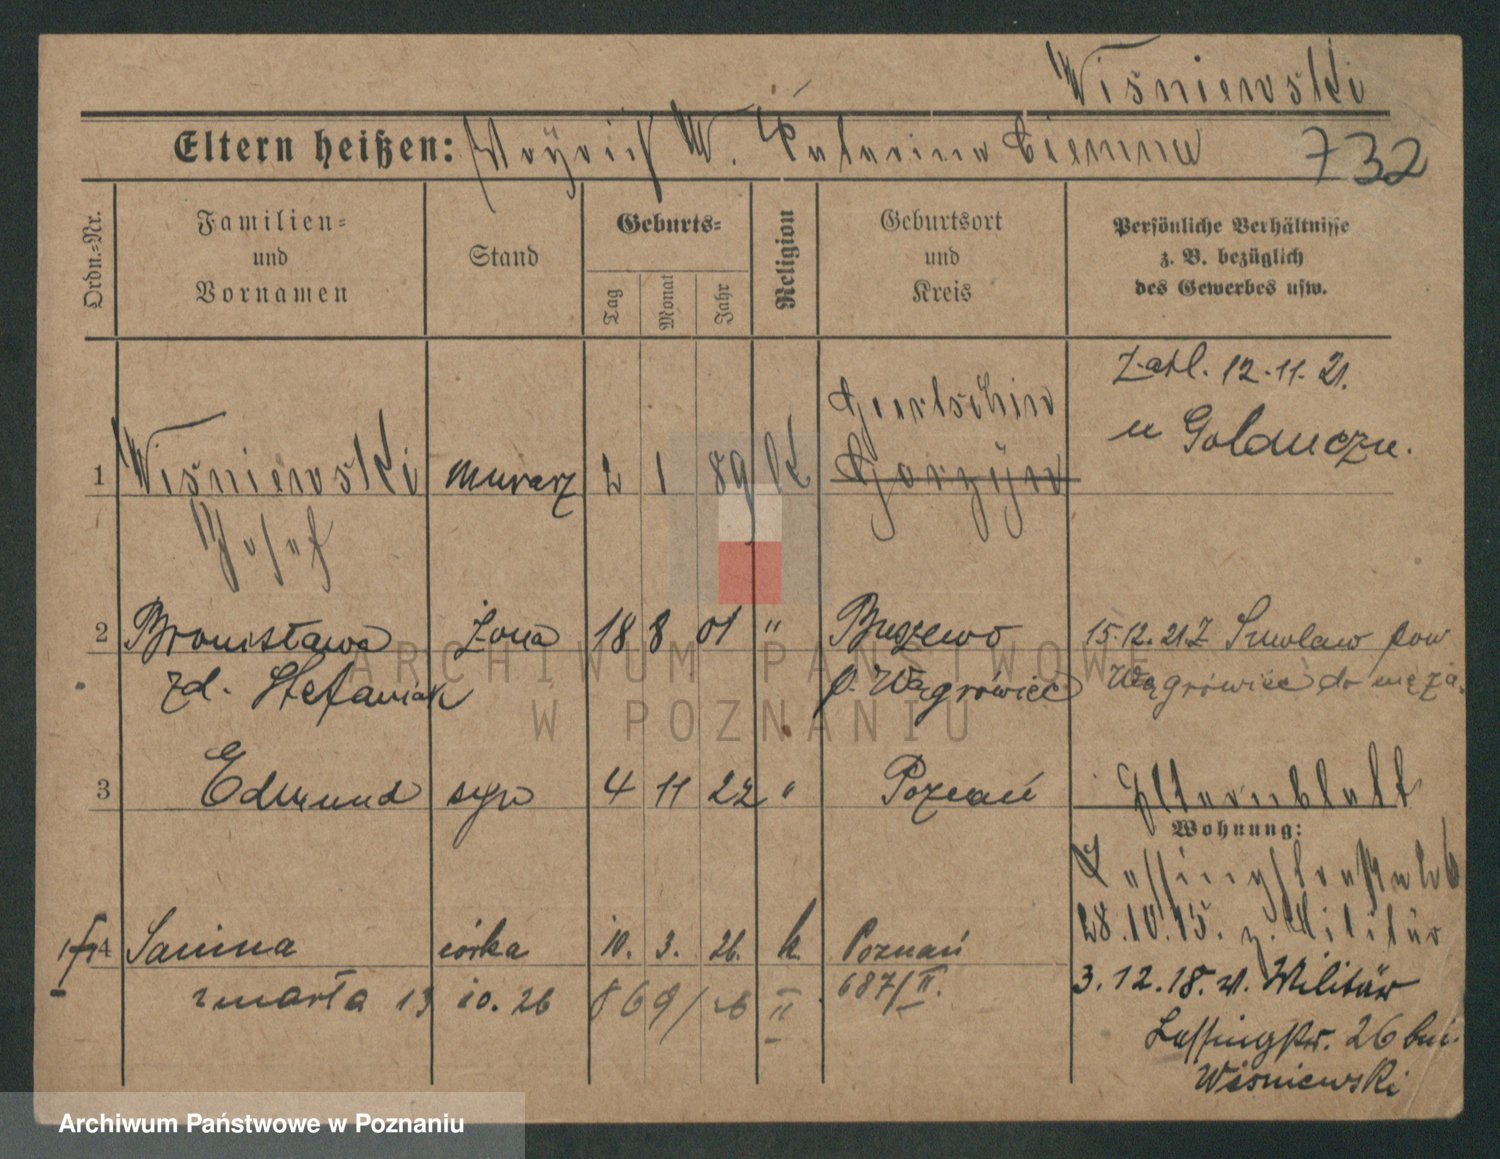 Wiśniewski
Eltern heißen: W. Katarina Ciemna 732
Ordn.=Nr.
Familien=
und
Vornamen
Stand
Geburts=
Tag
Monat
Jahr
Religion
Geburtsort
und
Kreis
Persönliche Verhältnisse
z. B. bezüglich
des Gewerbes usw.
Zaśl. 12.11.21.
w Golańczu.
Gortschin
1 Wiśniewski murarz 2 1 89 K Gorzyn
Josef
2 Bronisława żona 18 8 01 " Buszewo 15.12.21 Z Smolary pow
zd. Stefaniak p. Wągrówiec Wągrówiec do męża.
3 Edmund syn 4 11 22 " Poznań Elternblatt
Wohnung:
Lessingstraße 26
28.10.15. z. Militär
4 Janina córka 10. 3. 26. k. Poznań
3.12.18. v. Militär
zmarła 13 10. 26 869/26 II 687/II.
Lessingstr. 26 bei
Wiśniewski
ARCHIWUM PAŃSTWOWE
W POZNANIU
Archiwum Państwowe w Poznaniu